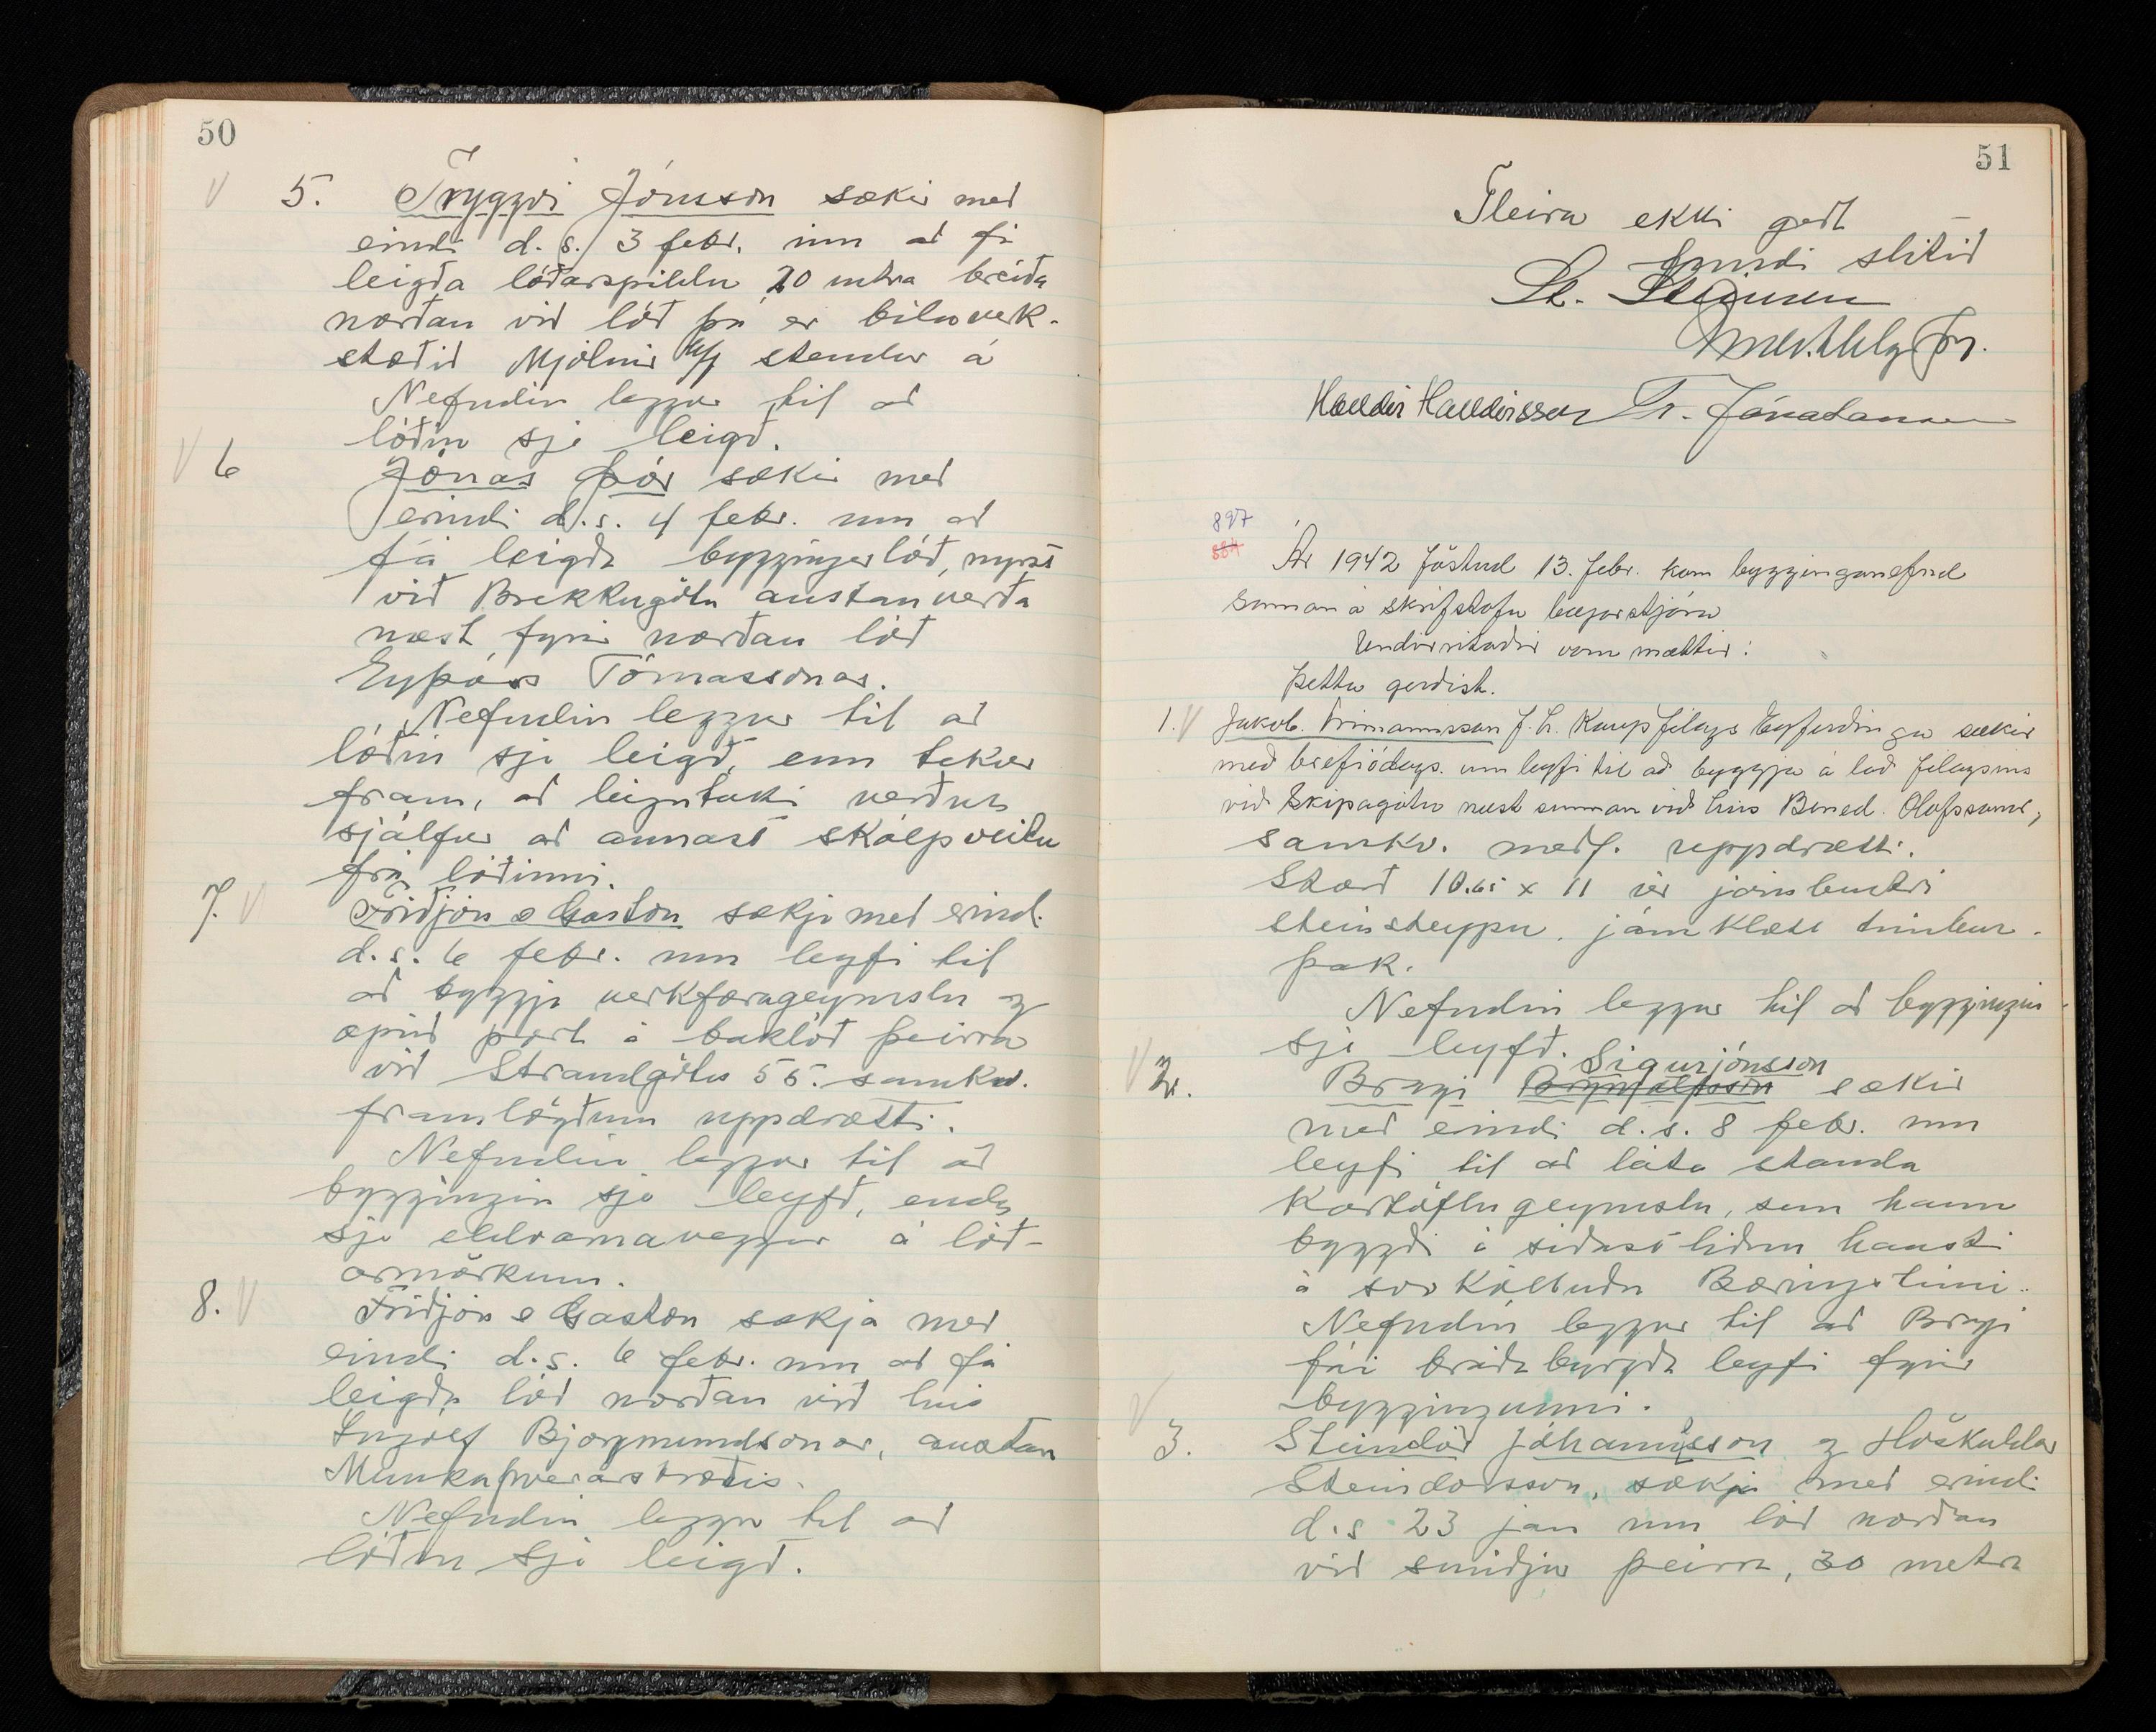 50
5. Tryggvi Jónsson sækir með
erindi d.s. 3 febr. um að fá
leigða lóðarspildu 20 metra breiða
norðan við lóð þá er bílaverk-
stæðið Mjölnir h/f stendur á
Nefndin leggur til að
lóðin sje leigð.
6 Jónas Þór sækir með
erindi d.s. 4 febr. um að
fá leigða byggingarlóð, nyrst
við Brekkugötu austanverða
næst fyrir norðan lóð
Eyþórs Tómassonar.
Nefndin leggur til að
lóðin sje leigð, enn tekur
fram, að leigutaki verður
sjálfur að annast skólpveitu
frá lóðinni.
7. Friðjón & Gaston sækja með erind.
d.s. 6 febr. um leyfi til
að byggja verkfærageymslu og
opið port á baklóð þeirra
við Strandgötu 55. samkv.
framlögðum uppdrætti.
Nefndin leggur til að
byggingin sje leyfð, enda
sje eldvarnaveggur á lóð-
armörkum.
8. Friðjón & Gaston sækja með
erindi d.s. 6 febr. um að fá
leigða lóð norðan við hús
Ingólf Bjargmundsonar, austan
Munkaþverárstrætis.
Nefndin leggur til að
lóðin sje leigð.
51
Fleira ekki gert
fundi slitið
St. Steinsen
Halldór Halldórsson Tr. Jónatansson
897
884
Ár 1942 föstud 13. febr. kom byggingarnefnd
saman á skrifstofu bæjarstjóra
Undirritaðir voru mættir:
Þetta gerðist.
1. Jakob Frímannsson f.h. Kaupfélags Eyfirðinga sækir
með bréfi ódags. um leyfi til að byggja á lóð félagsins
við Skipagötu næst sunnan við hús Bened. Ólafssonar,
samkv. meðf. uppdrætti.
Stærð 10.65 x 11 úr járnbentri
steinsteypu, járnklætt timbur-
þak.
Nefndin leggur til að byggingin
sje leyfð.
Sigurjónsson
2. Bragi Brynjolfsson sækir
með erindi d.s. 8 febr. um
leyfi til að láta standa
kartöflugeymslu, sem hann
byggði á síðastliðnu hausti
á svokölluðu Bæringstúni.
Nefndin leggur til að Bragi
fái bráðabyrgða leyfi fyrir
byggingunni.
3. Steindór Jóhannesson og Höskuldur
Steindórsson, sækja með erindi
d.s 23 jan um lóð norðan
við smiðju þeirra, 30 metra